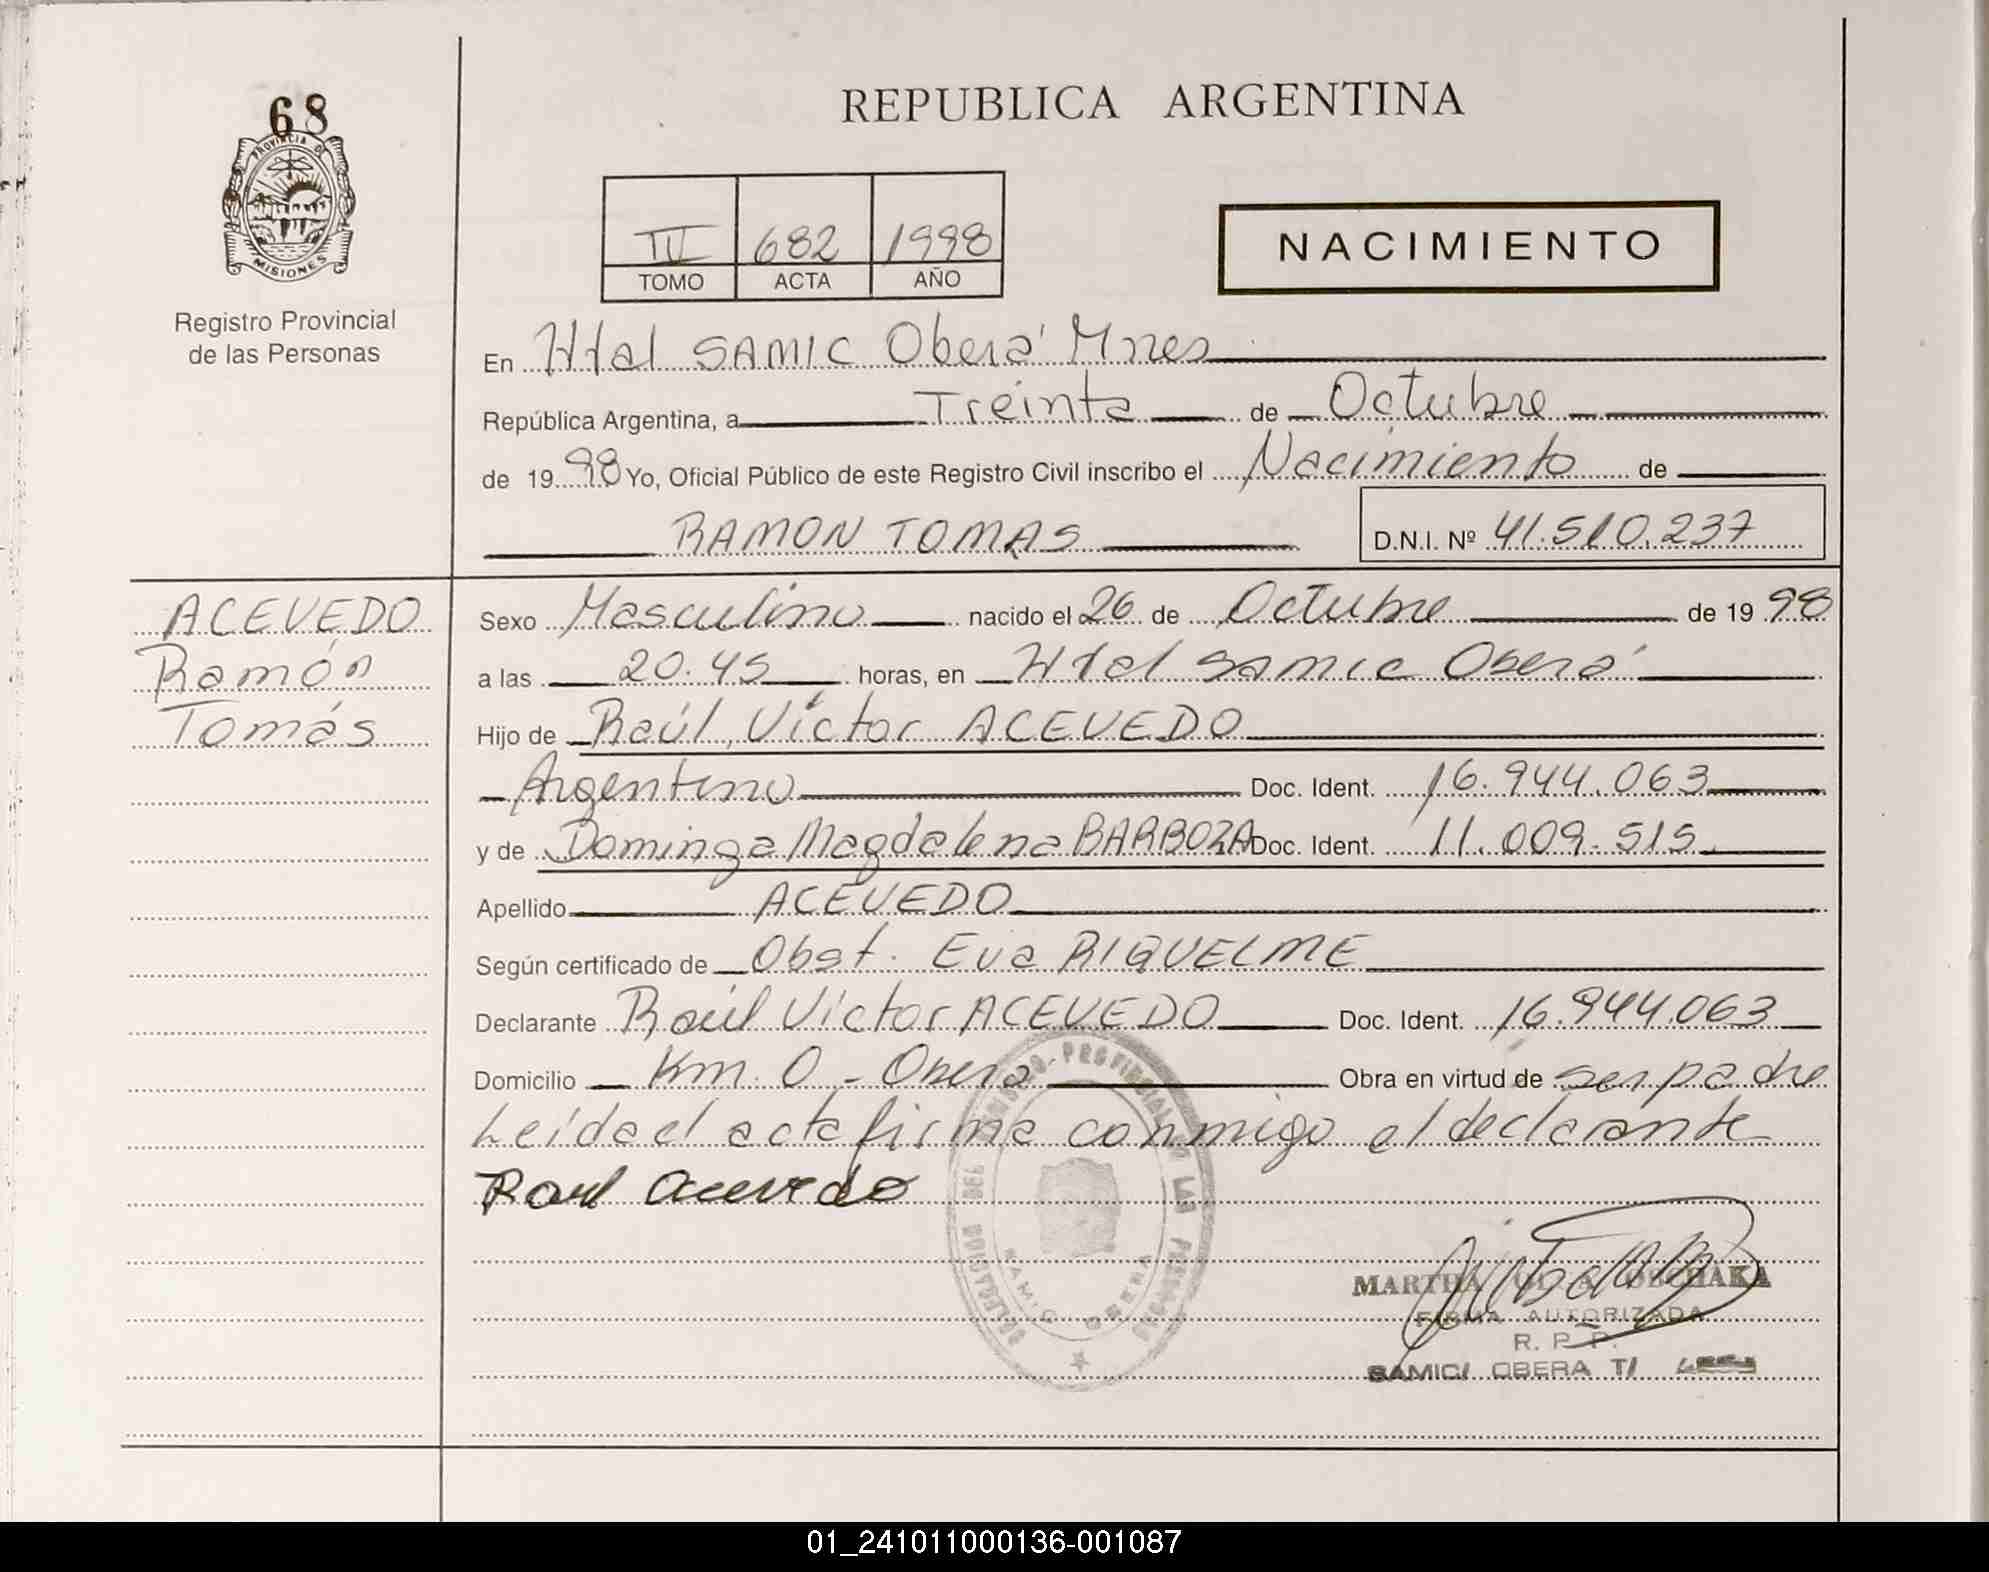 68
PROVINCIA D
MISIONES
Registro Provincial
de las Personas
REPUBLICA ARGENTINA
III 682 1998
TOMO ACTA AÑO
NACIMIENTO
En Htal SAMIC Oberá Mnes
República Argentina, a Treinta de Octubre
de 1998 Yo, Oficial Público de este Registro Civil inscribo el Nacimiento de
RAMON TOMAS D.N.I. Nº 41.510.237
ACEVEDO
Ramón
Tomás
Sexo Masculino nacido el 26 de Octubre de 1998
a las 20.45 horas, en Htal SAMIC Oberá
Hijo de Raúl Víctor ACEVEDO
Argentino Doc. Ident. 16.944.063
y de Dominga Magdalena BARBOZA Doc. Ident. 11.009.515
Apellido ACEVEDO
Según certificado de Obst. Eva RIQUELME
Declarante Raúl Víctor ACEVEDO Doc. Ident. 16.944.063
Domicilio Km. 0 - Oberá Obra en virtud de ser padre
Leída el acta firma conmigo el declarante
Raul Acevedo
DELEGACION DEL REGISTRO PROVINCIAL DE LAS PERSONAS
SAMIC OBERA
MARTHA
FIRMA AUTORIZADA
R. P. P.
SAMIC/ OBERA T/
01_241011000136-001087